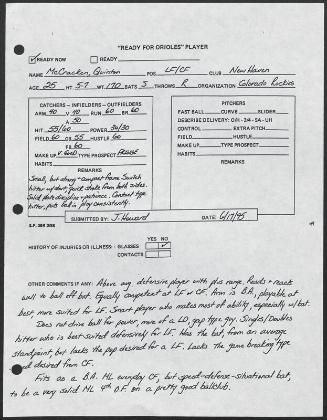 "READY FOR ORIOLES" PLAYER
✓ READY NOW READY
NAME McCracken, Quinton POS. LF/CF CLUB New Haven
AGE 25 HT. 5-7 WT. 170 BATS S THROWS R ORGANIZATION Colorado Rockies
CATCHERS - INFIELDERS - OUTFIELDERS
ARM 40 RUN 60
HIT 55/60 POWER 30/30
FIELD 60 HUSTLE 60
MAKE UP V. Good TYPE PROSPECT
HABITS
REMARKS
Small, but strong + compact frame. Switch
hitter w/short, quick stroke from both sides.
Solid plate discipline + patience. Contact type
hitter, puts ball in play consistently.
PITCHERS
FAST BALL CURVE SLIDER
DESCRIBE DELIVERY: O/H - 3/4 - SA - UH
CONTROL EXTRA PITCH
FIELD HUSTLE
MAKE UP TYPE PROSPECT
HABITS
REMARKS
SUBMITTED BY: J. Howard DATE: 6/17/95
YES NO
HISTORY OF INJURIES OR ILLNESS: - GLASSES ✓
CONTACTS
OTHER COMMENTS IF ANY: Above avg defensive player with plus range. Reads + reacts
well to ball off bat. Equally competent at LF or CF. Arm is B.A., playable at
best more suited for LF. Smart player who makes most of ability, especially w/bat.
Does not drive ball for power, more of a LD, gap type guy. Singles/Doubles
hitter who is best suited defensively for LF. Has the bat, from an average
standpoint, but lacks the pop desired for a LF. Lacks the game breaking type
desired from CF.
Fits as a B.A. ML everyday CF, but speed-defense-situational bat,
to be a very solid ML 4th O.F. on a pretty good ballclub.